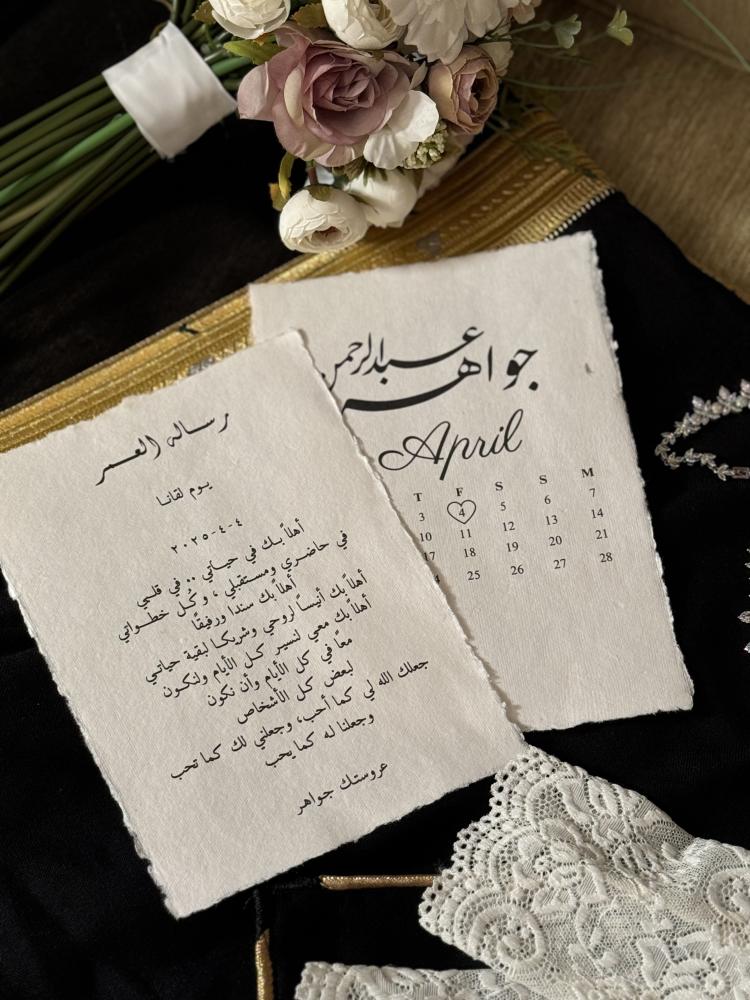 رسالة العمر
يوم لقانا
٤-٤-٢٠٢٥
أهلاً بك في حياتي .. في قلبي
في حاضري ومستقبلي ، وكُل خطواتي
أهلاً بك سندا ورفيقًا
أهلاً بك أنيساً لروحي وشريكا لبقية حياتي
أهلا بك معي لنسير كل الأيام ولنكون
معاً في كل الأيام وأن نكون
لبعض كل الأشخاص
جعلك الله لي كما أحب، وجعلني لك كما تحب
وجعلنا له كما يحب
عروستك جواهر
عبدالرحمن
جواهر
April
T F S S M
3 4 5 6 7
10 11 12 13 14
17 18 19 20 21
25 26 27 28